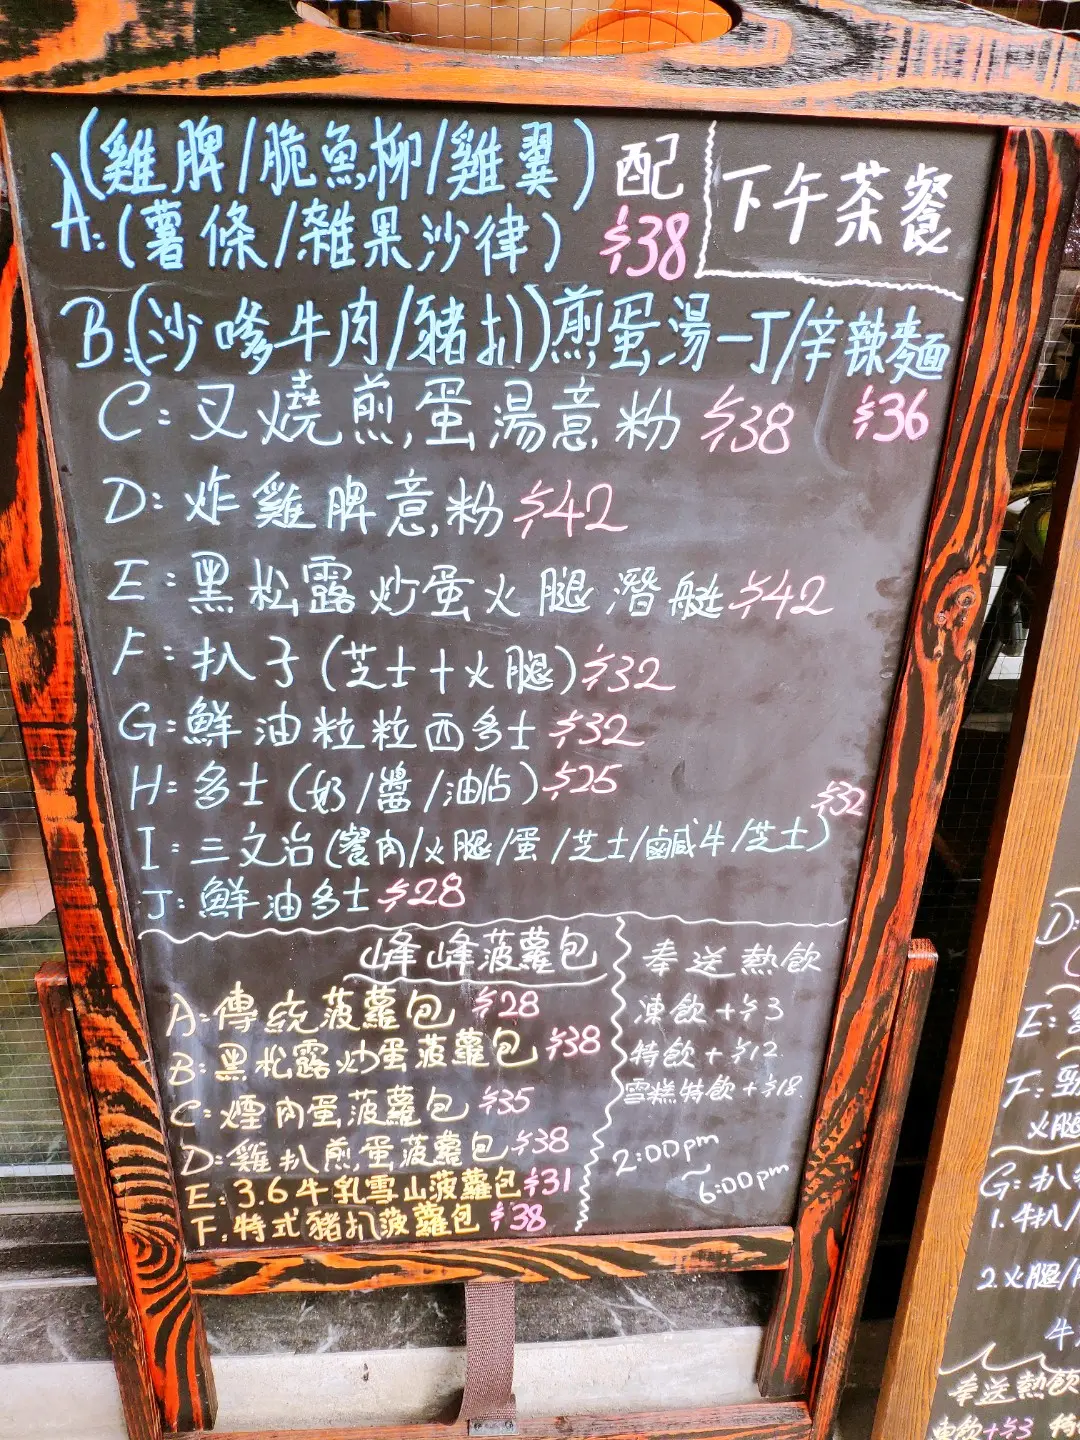 下午茶餐
A:(雞髀/脆魚柳/雞翼)配
(薯條/雜果沙律) $38
B:(沙嗲牛肉/豬扒)煎蛋湯一丁/辛辣麵
$36
C:叉燒煎蛋湯意粉 $38
D:炸雞髀意粉 $42
E:黑松露炒蛋火腿潛艇 $42
F:扒子(芝士+火腿) $32
G:鮮油粒粒西多士 $32
H:多士(奶/醬/油佔) $25
I:三文治(餐肉/火腿/蛋/芝士/鹹牛/芝士) $32
J:鮮油多士 $28
峰峰菠蘿包
A:傳統菠蘿包 $28
B:黑松露炒蛋菠蘿包 $38
C:煙肉蛋菠蘿包 $35
D:雞扒煎蛋菠蘿包 $38
E:3.6牛乳雪山菠蘿包 $31
F.特式豬扒菠蘿包 $38
奉送熱飲
凍飲+$3
特飲+$12
雪糕特飲+$18.
2:00pm
~6:00pm
D:
E:
F:
火腿
G:扒
1.牛扒/
2.火腿/
牛
奉送熱飲
凍飲+$3 特